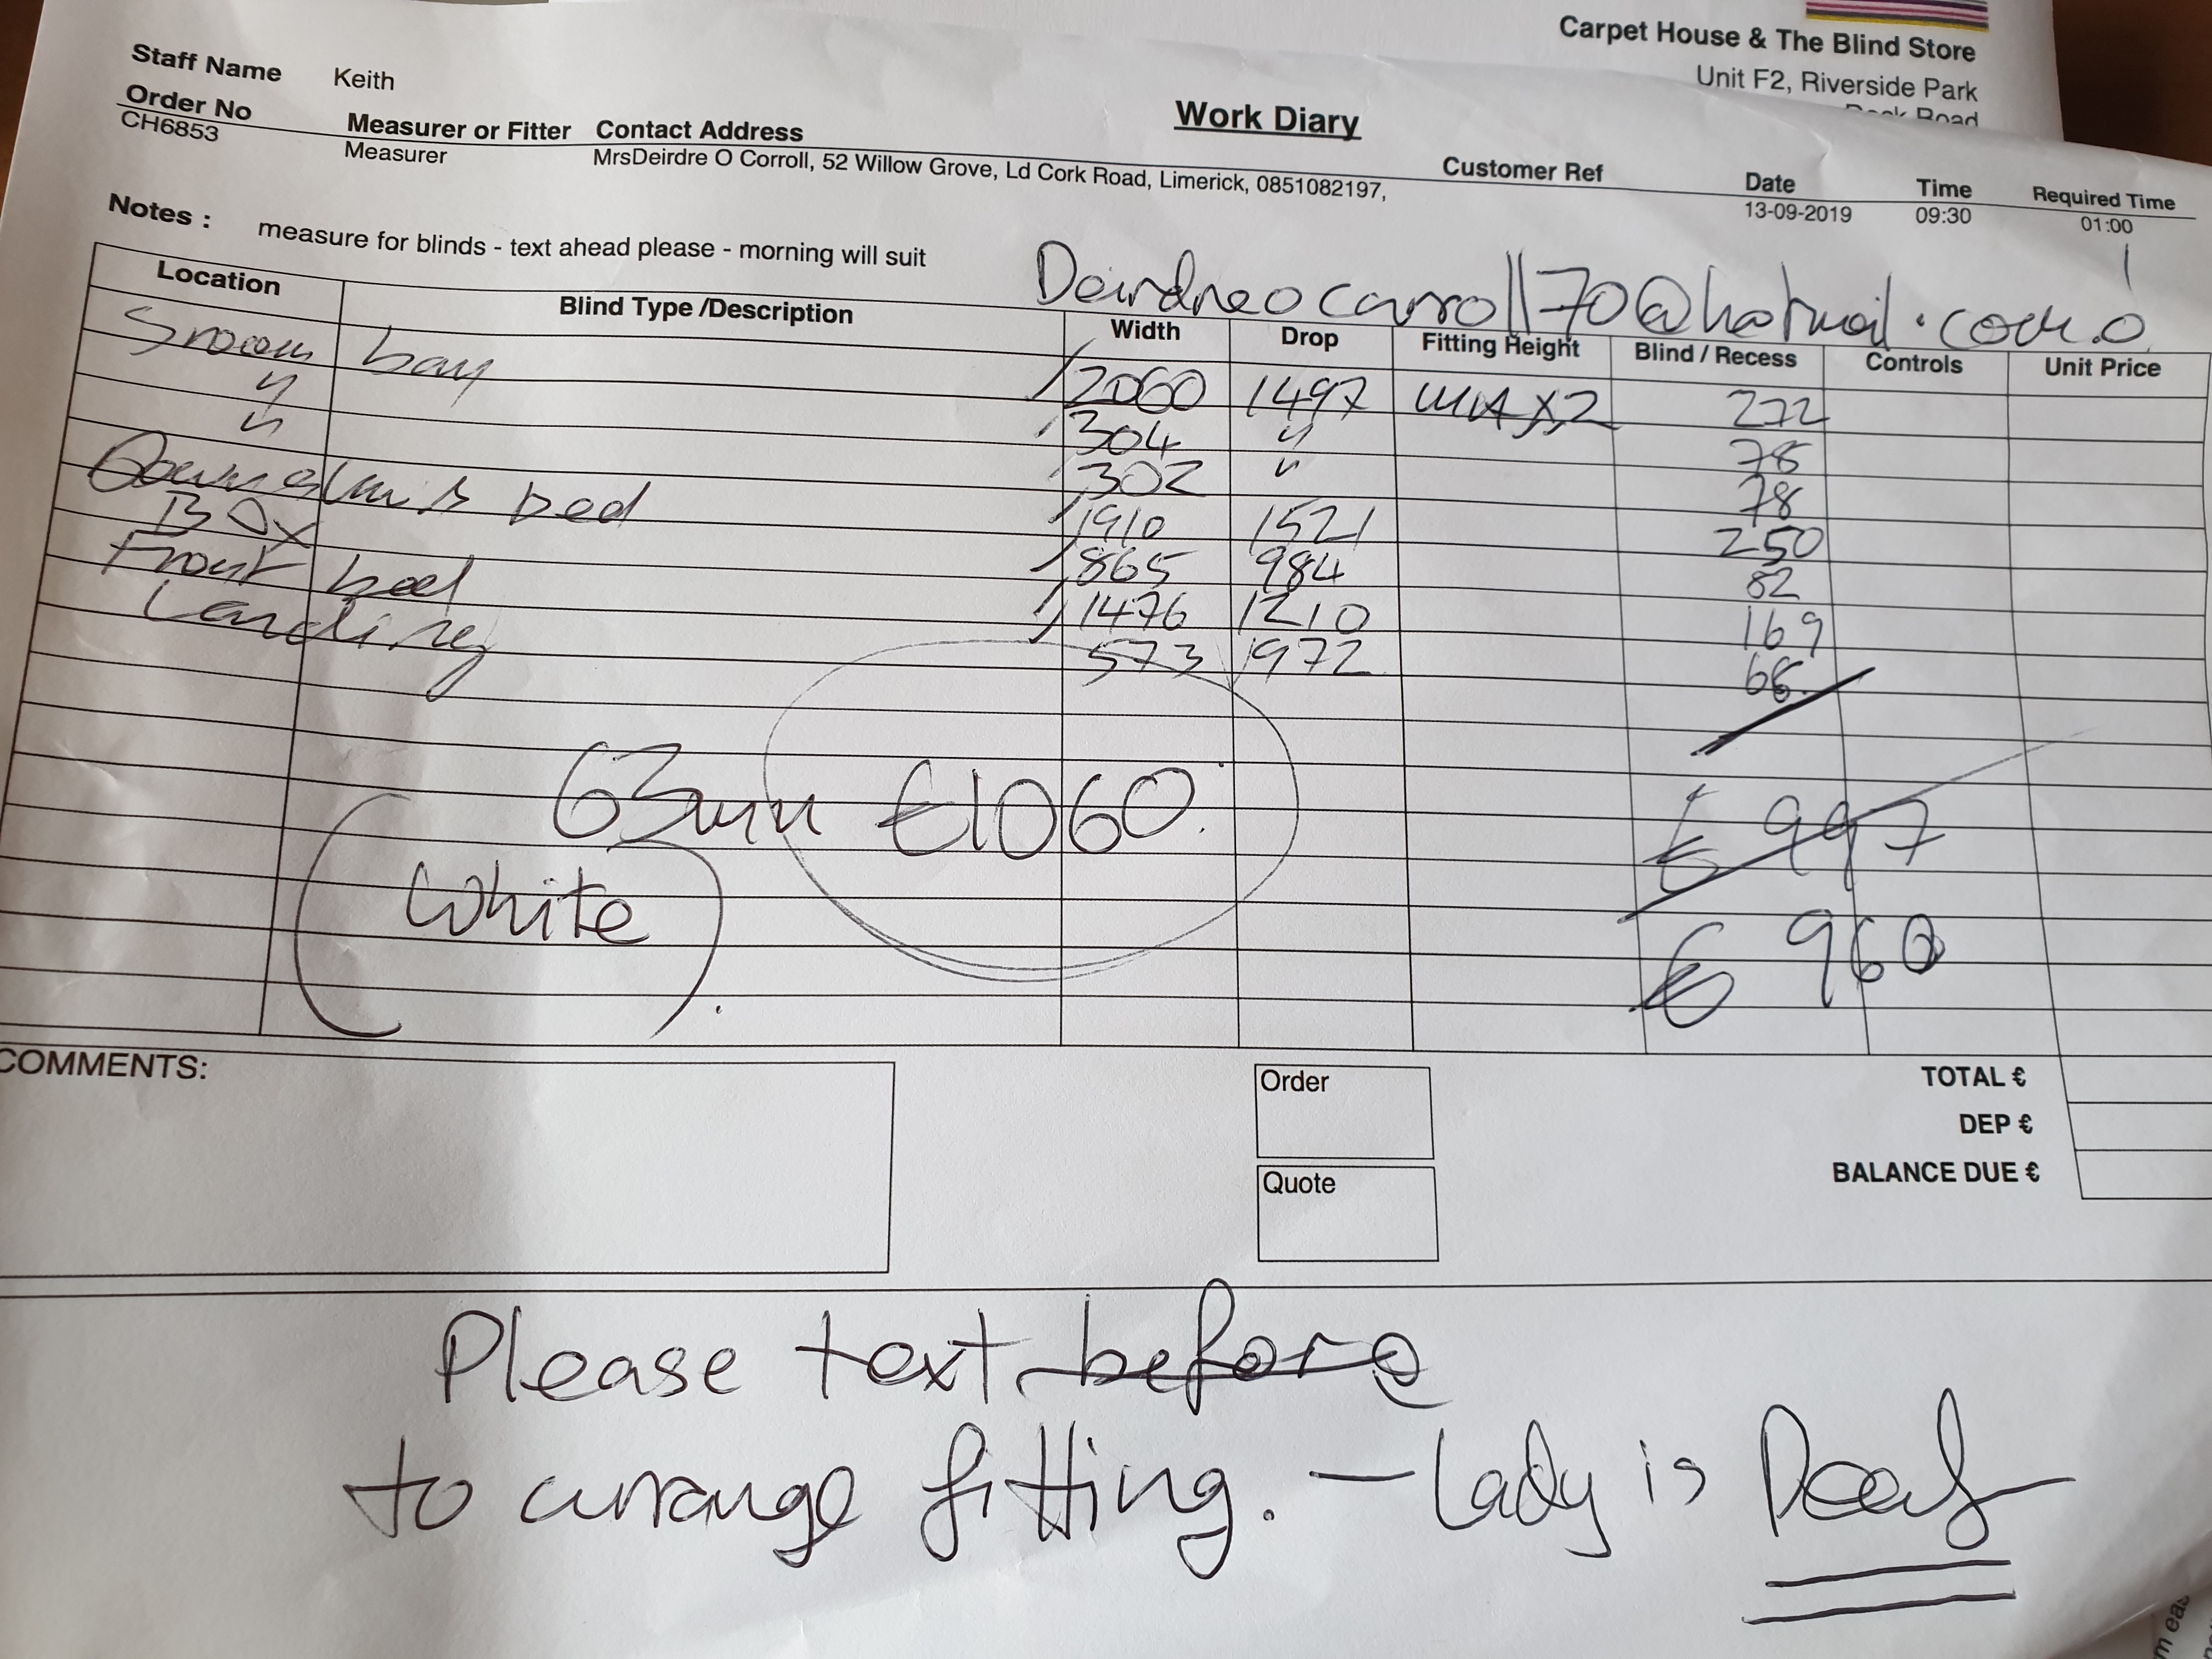 Carpet House & The Blind Store
Unit F2, Riverside Park
Road
Staff Name Keith
Work Diary
Order No Measurer or Fitter Contact Address Customer Ref Date Time Required Time
CH6853 Measurer MrsDeirdre O Corroll, 52 Willow Grove, Ld Cork Road, Limerick, 0851082197, 13-09-2019 09:30 01:00
Notes : measure for blinds - text ahead please - morning will suit
Deirdreocarroll70@hotmail.com
Location Blind Type /Description Width Drop Fitting Height Blind / Recess Controls Unit Price
Sroom bay 2060 1497 X2 272
" 304 " 78
" 302 " 78
Downstairs bed 1910 1521 250
Box 865 984 82
Front bed 1476 1210 169
Landing 573 972 66
63mm €1060
€ 997
(White)
€ 960
COMMENTS:
Order
Quote
TOTAL €
DEP €
BALANCE DUE €
Please text before
to arrange fitting. - Lady is Deaf